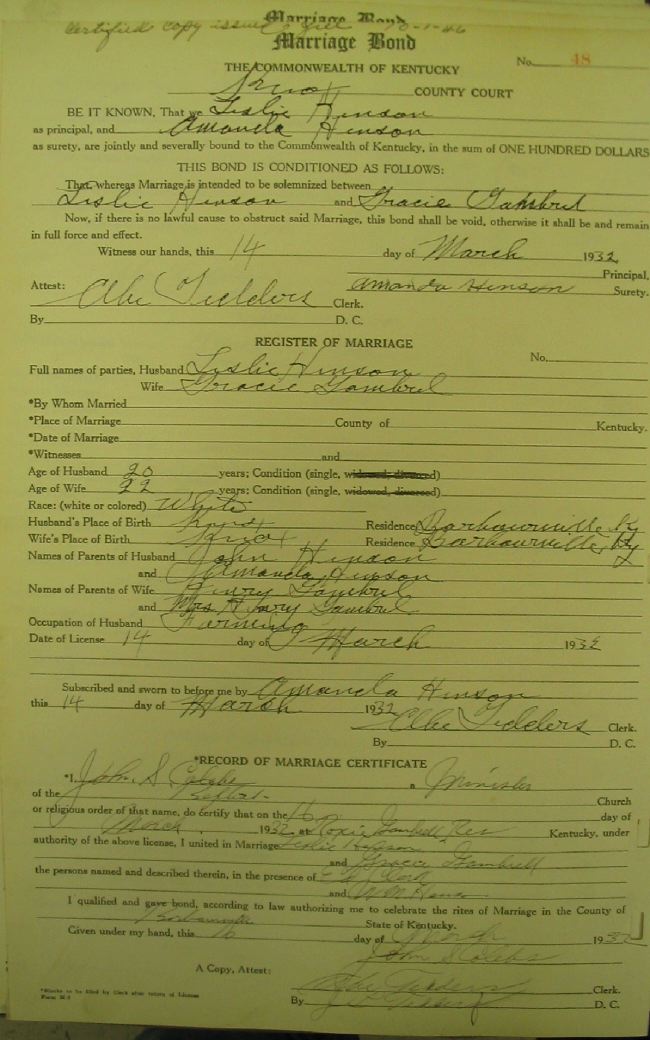 Marriage Bond
Certified copy issued
Marriage Bond
THE COMMONWEALTH OF KENTUCKY
No. 48
Knox COUNTY COURT
BE IT KNOWN, That we Leslie Hinson
as principal, and Amanda Hinson
as surety, are jointly and severally bound to the Commonwealth of Kentucky, in the sum of ONE HUNDRED DOLLARS
THIS BOND IS CONDITIONED AS FOLLOWS:
That, whereas Marriage is intended to be solemnized between
Leslie Hinson and Gracie Gambrel
Now, if there is no lawful cause to obstruct said Marriage, this bond shall be void, otherwise it shall be and remain
in full force and effect.
Witness our hands, this 14 day of March 1932
Principal,
Attest: Amanda Hinson Surety.
Clerk.
By D. C.
REGISTER OF MARRIAGE
No.
Full names of parties, Husband Leslie Hinson
Wife Gracie Gambrel
*By Whom Married
*Place of Marriage County of Kentucky.
*Date of Marriage
*Witnesses and
Age of Husband 20 years; Condition (single, widowed, divorced)
Age of Wife 22 years; Condition (single, widowed, divorced)
Race: (white or colored) White
Husband's Place of Birth Knox Residence Barbourville, Ky
Wife's Place of Birth Knox Residence Barbourville, Ky
Names of Parents of Husband John Hinson
and Amanda Hinson
Names of Parents of Wife Henry Gambrel
and Mrs Henry Gambrel
Occupation of Husband Farming
Date of License 14 day of March 1932
Subscribed and sworn to before me by Amanda Hinson
this 14 day of March 1932
Clerk.
By D. C.
*RECORD OF MARRIAGE CERTIFICATE
*I, John S. a Minister
of the Baptist Church
or religious order of that name, do certify that on the 16 day of
March, 1932 at Roxie Gambrell Res Kentucky, under
authority of the above license, I united in Marriage Leslie Hinson
and Gracie Gambrell
the persons named and described therein, in the presence of
and
I qualified and gave bond, according to law authorizing me to celebrate the rites of Marriage in the County of
State of Kentucky.
Given under my hand, this 16 day of March 1932
John S.
A Copy, Attest:
Clerk.
By D. C.
*Blanks to be filled by Clerk after return of License